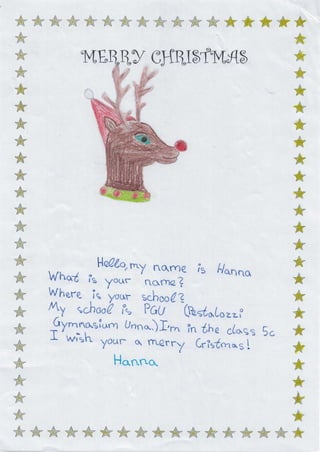 MERRY CHRISTMAS
Hello, my name is Hanna
What is your name?
Where is your school?
My school is PGU (Pestalozzi
Gymnasium Unna.) I'm in the class 5c
I wish your a merry Cristmas!
Hanna